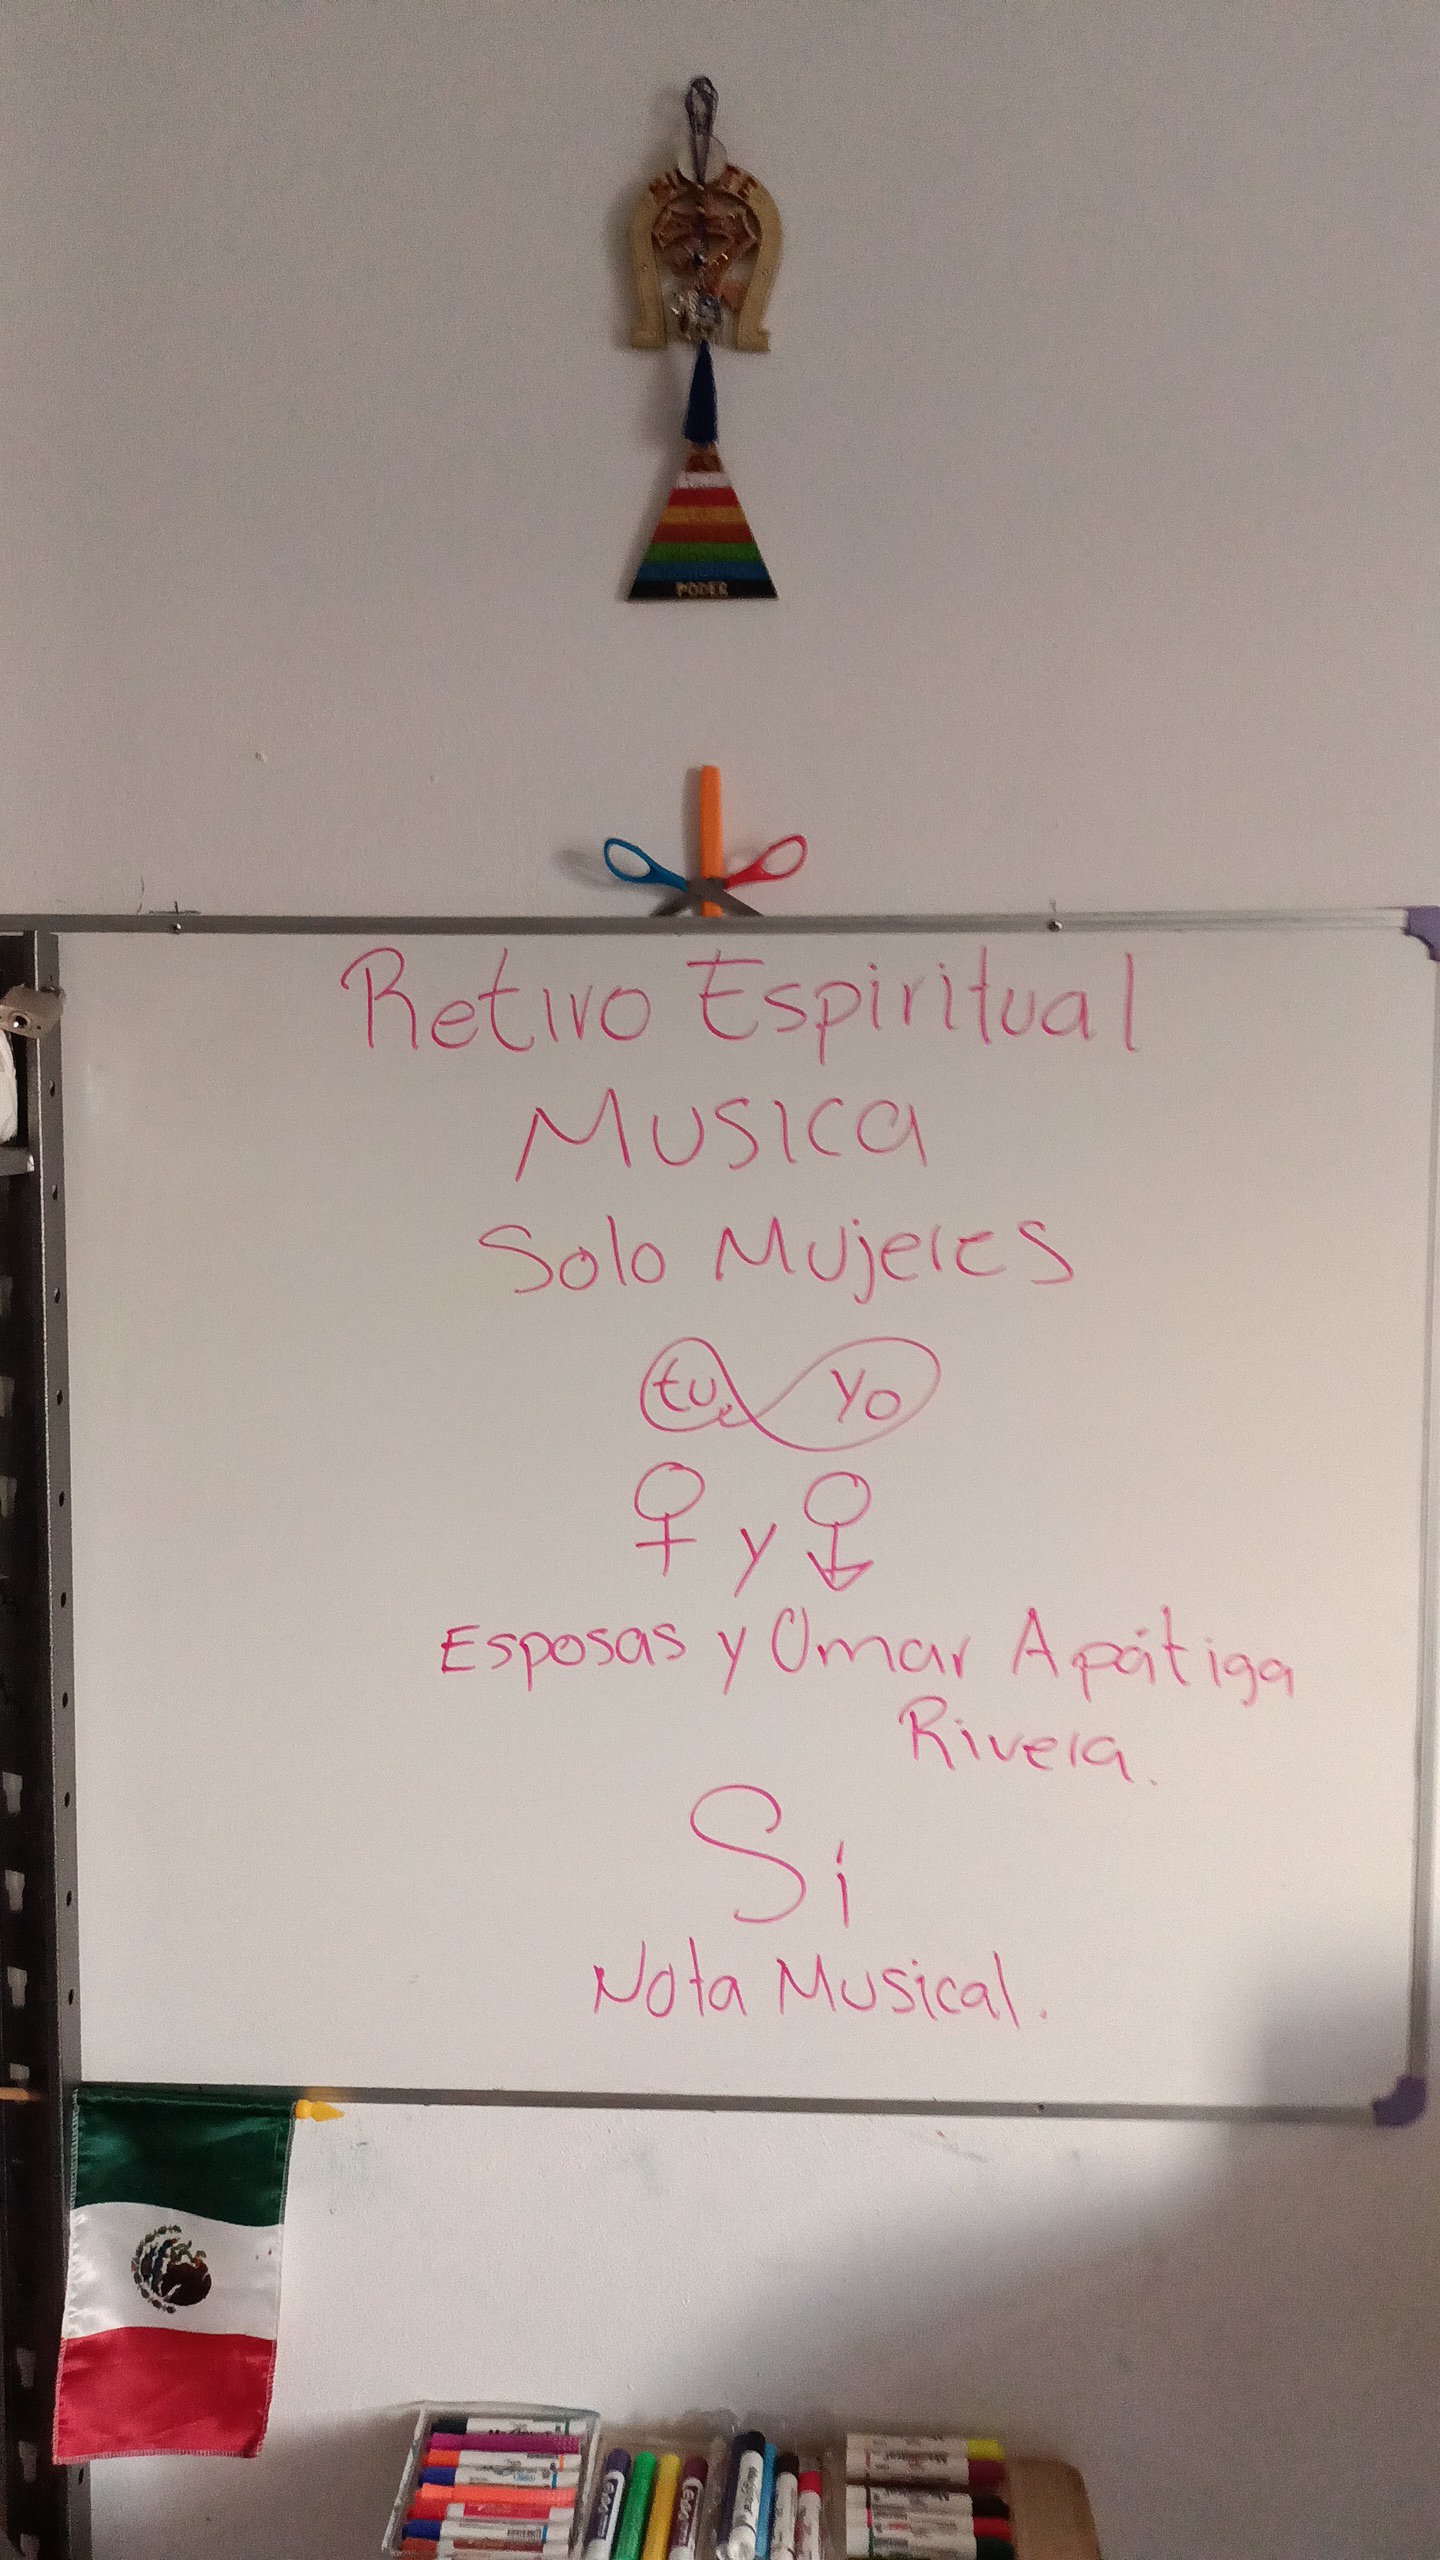 PODER
Retiro Espiritual
MUSICA
Solo Mujeres
tu yo
♀ y ♂
Esposas y Omar Apátiga
Rivera.
Si
Nota Musical.